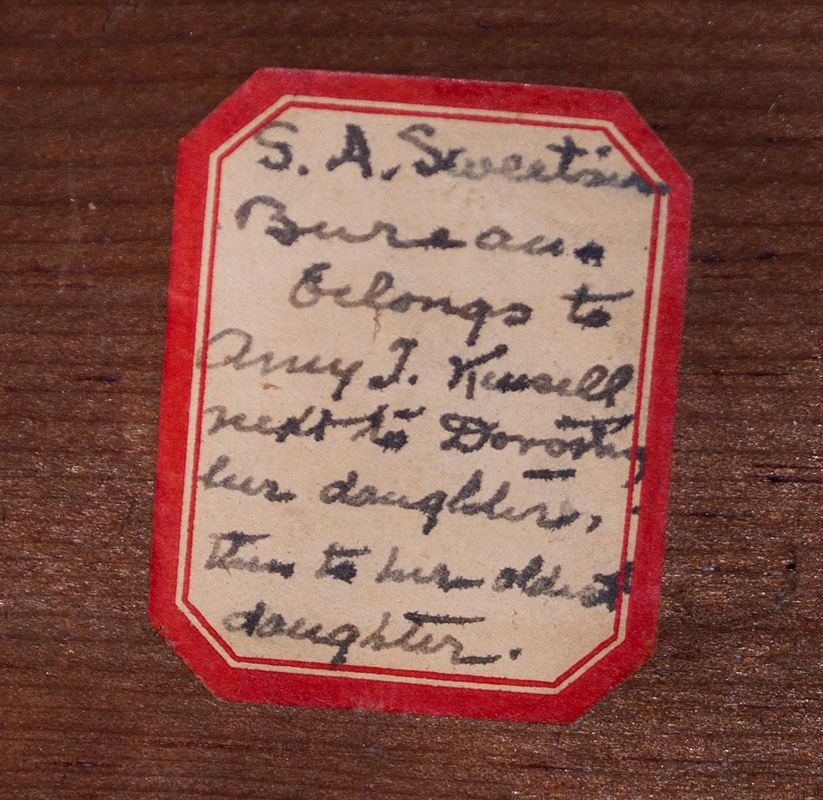 S. A. Sweetsir
Bureau.
belongs to
Amy J. Kinsell
next to Dorothy
her daughter,
then to her oldest
daughter.